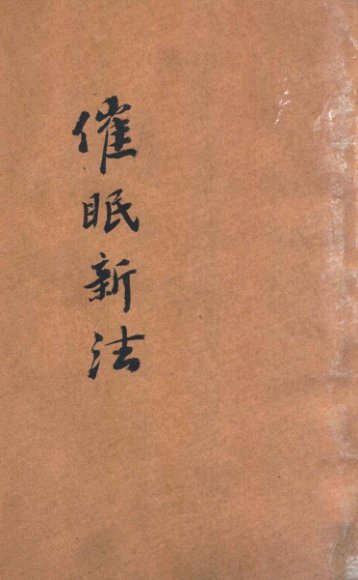 催眠新法